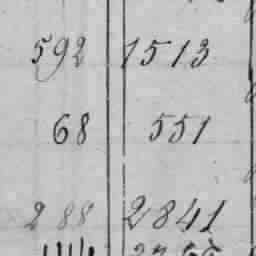 592 1513
68 551
288 2841